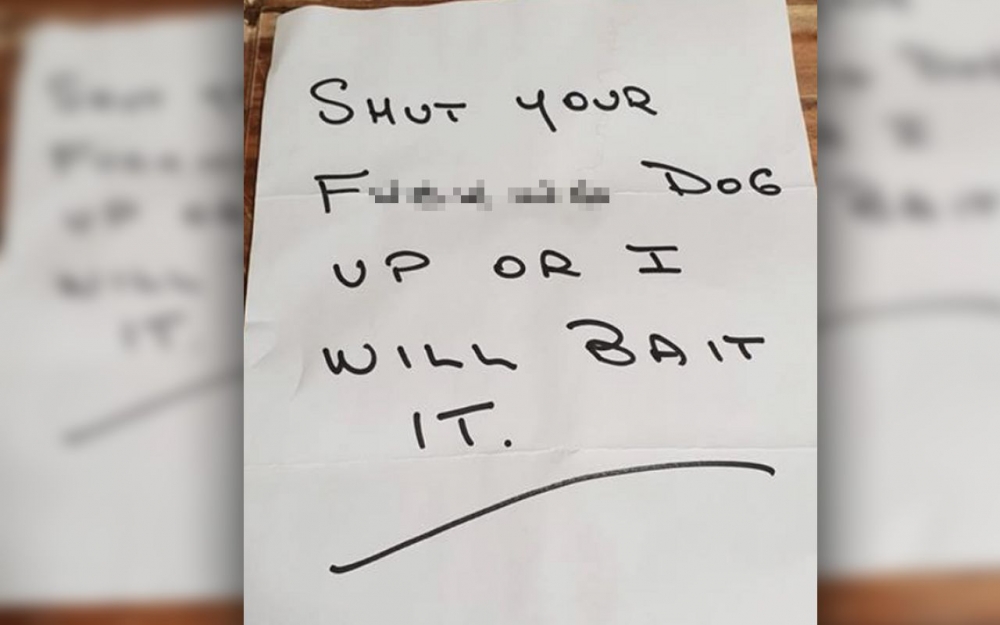 SHUT YOUR
DOG
UP OR I
WILL BAIT
IT.